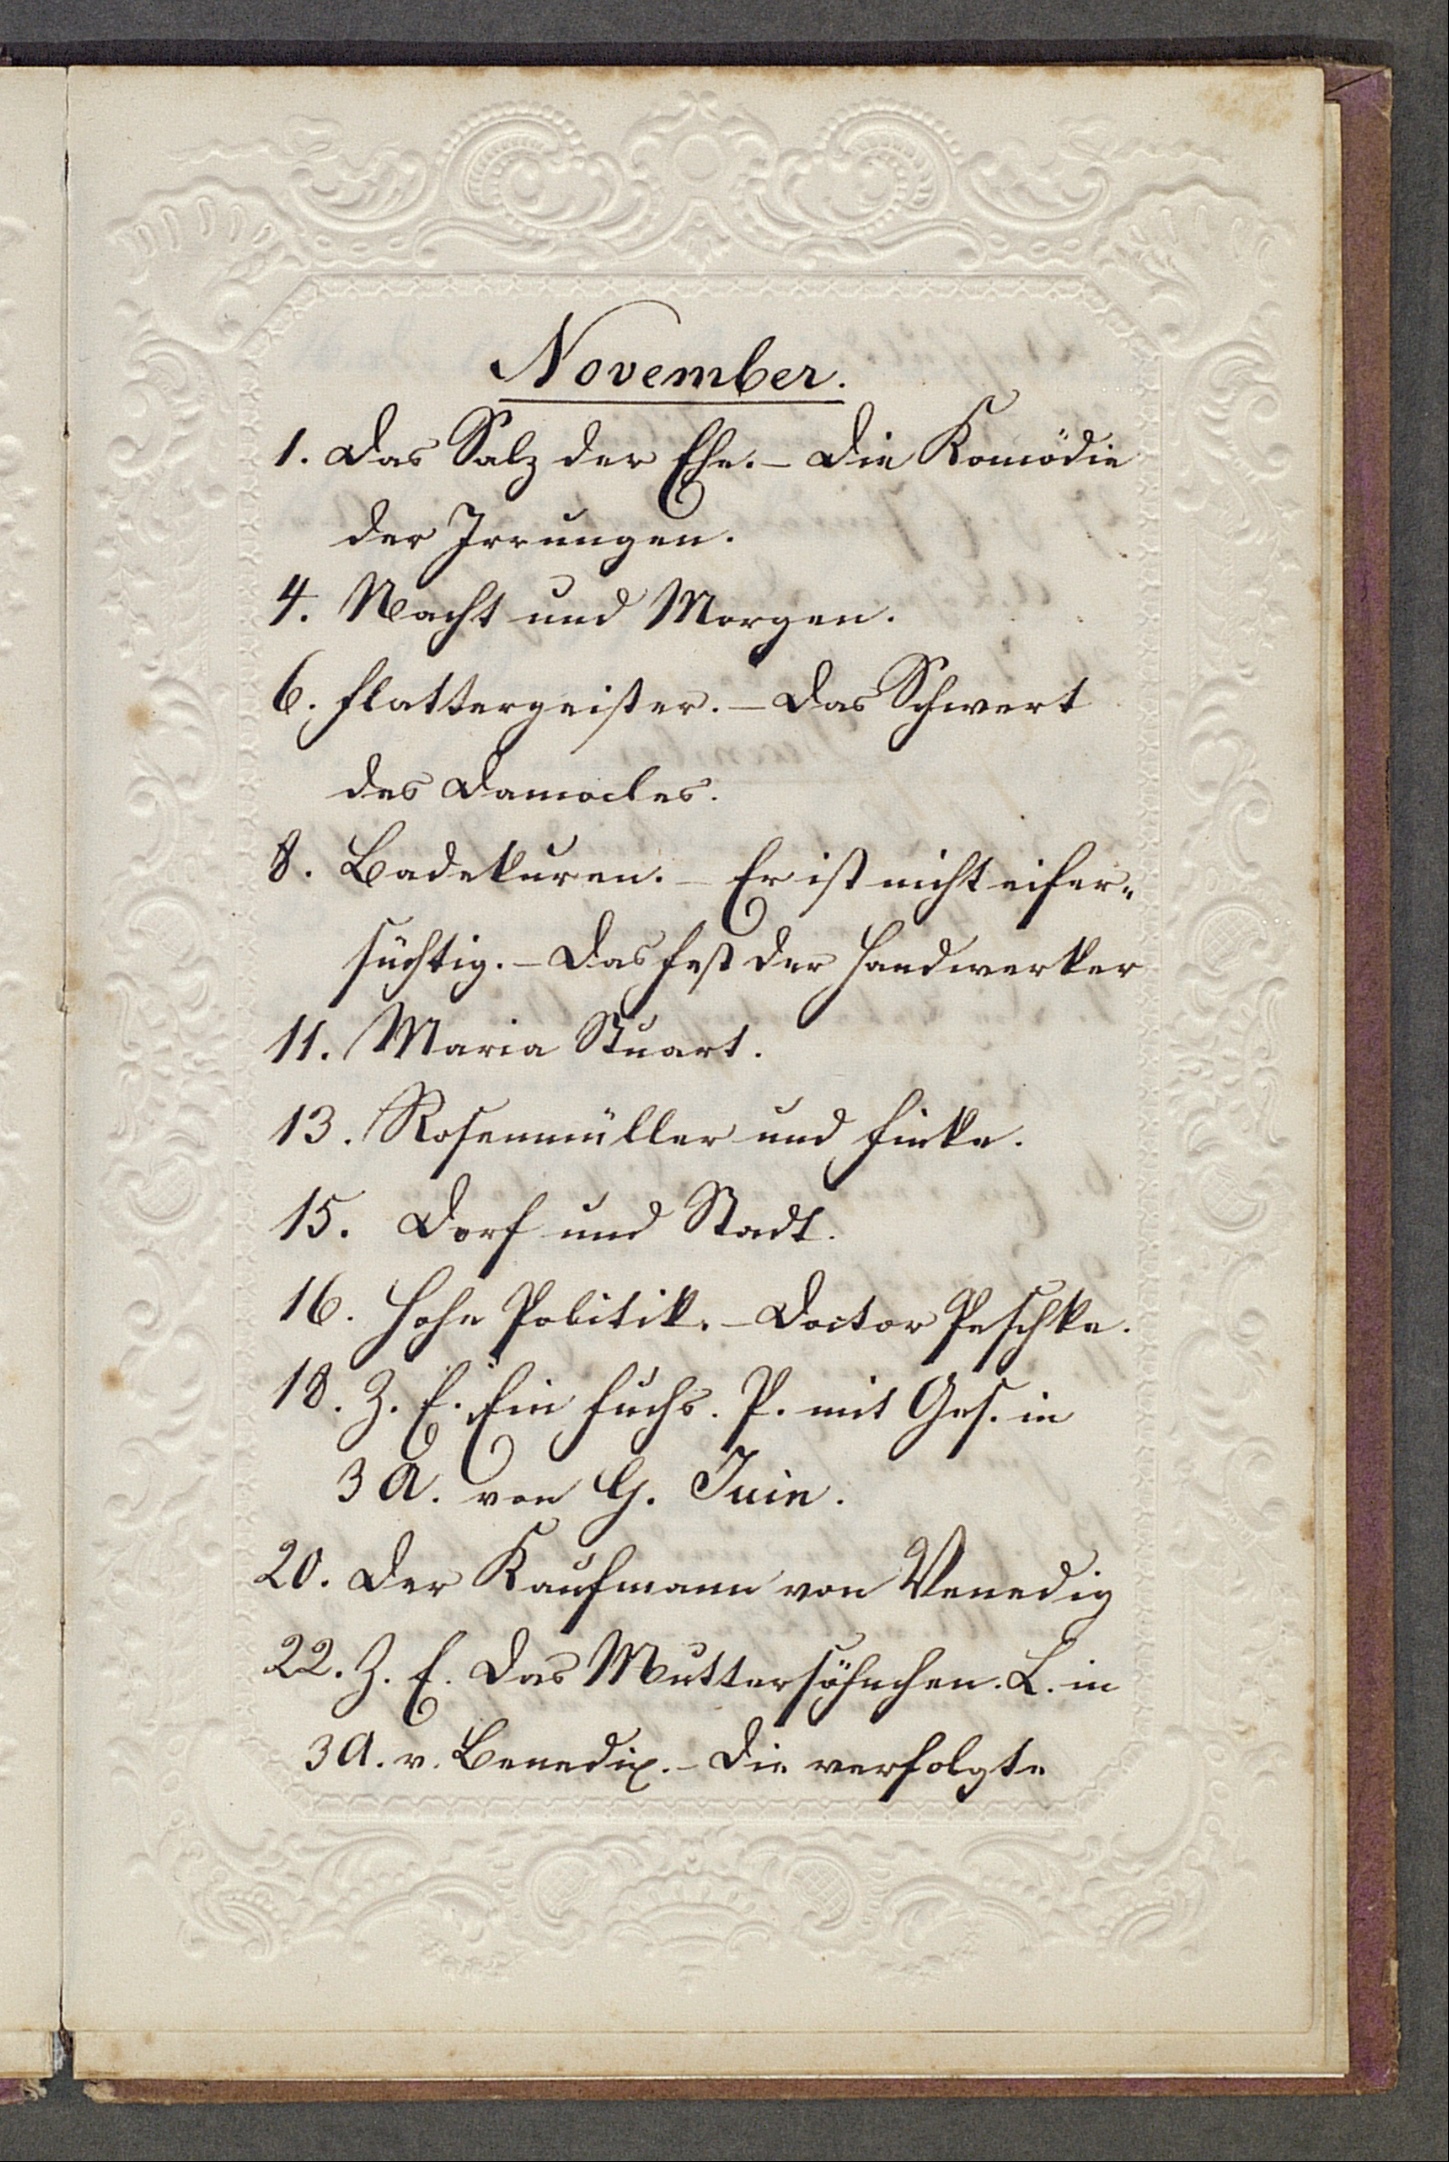 November.
1. Das Salz der Ehe. – Die Komödie
der Irrungen.
4. Nacht und Morgen.
6. Flattergeister. – Das Schwert
des Damocles.
8. Badekuren. – Er ist nicht eifer-
süchtig. – Das Fest der Handwerker
11. Maria Stuart.
13. Rosenmüller und Finke.
15. Dorf und Stadt.
16. Hohe Politik. – Doctor Peschke.
18. Z. E. Ein Fuchs. P. mit Ges. in
3 A. von G. Juin.
20. Der Kaufmann von Venedig
22. Z. E. Das Muttersöhnchen. L. in
3 A. v. Benedix. – Die verfolgte